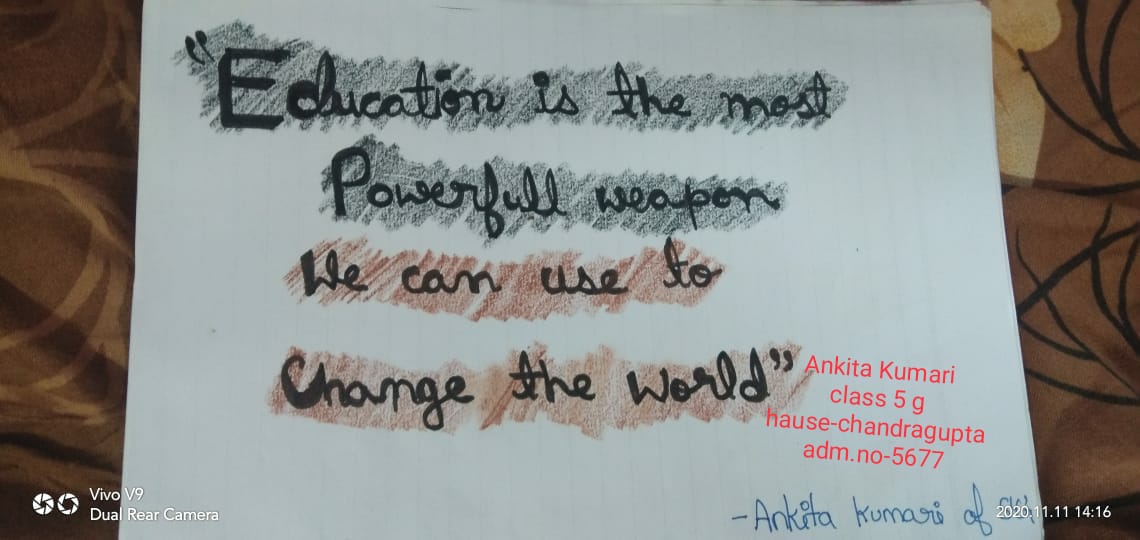 "Education is the most
Powerfull weapon
We can use to
Change the world"
Ankita Kumari
class 5 g
hause-chandragupta
adm.no-5677
-Ankita Kumari of
Vivo V9
Dual Rear Camera
2020.11.11 14:16